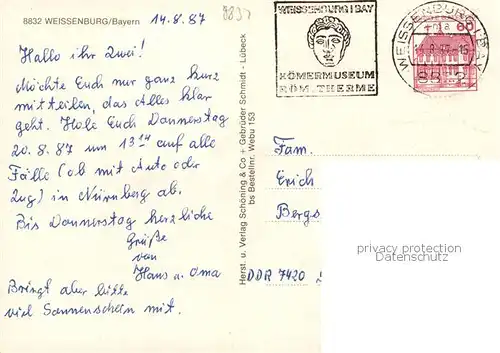 8832 WEISSENBURG/Bayern
14.8.87
Hallo ihr zwei!
Möchte Euch nur ganz kurz
mitteilen, das Alles klar
geht. Hole Euch Donnerstag
20.8.87 um 13 14 auf alle
Fälle (ob mit Auto oder
Zug) in Nürnberg ab.
Bis Donnerstag herzliche
Grüße
von
Hans u. Oma
Bringt aber bitte
viel Sonnenschein mit.
Herst. u. Verlag Schöning & Co + Gebrüder Schmidt - Lübeck
bs Bestellnr. Webu 153
WEISSENBURG I BAY
RÖMERMUSEUM
RÖM. THERME
WEISSENBURG, BAY
8832
60
Fam.
Erich
Bergs
DDR 7420
privacy protection
Datenschutz